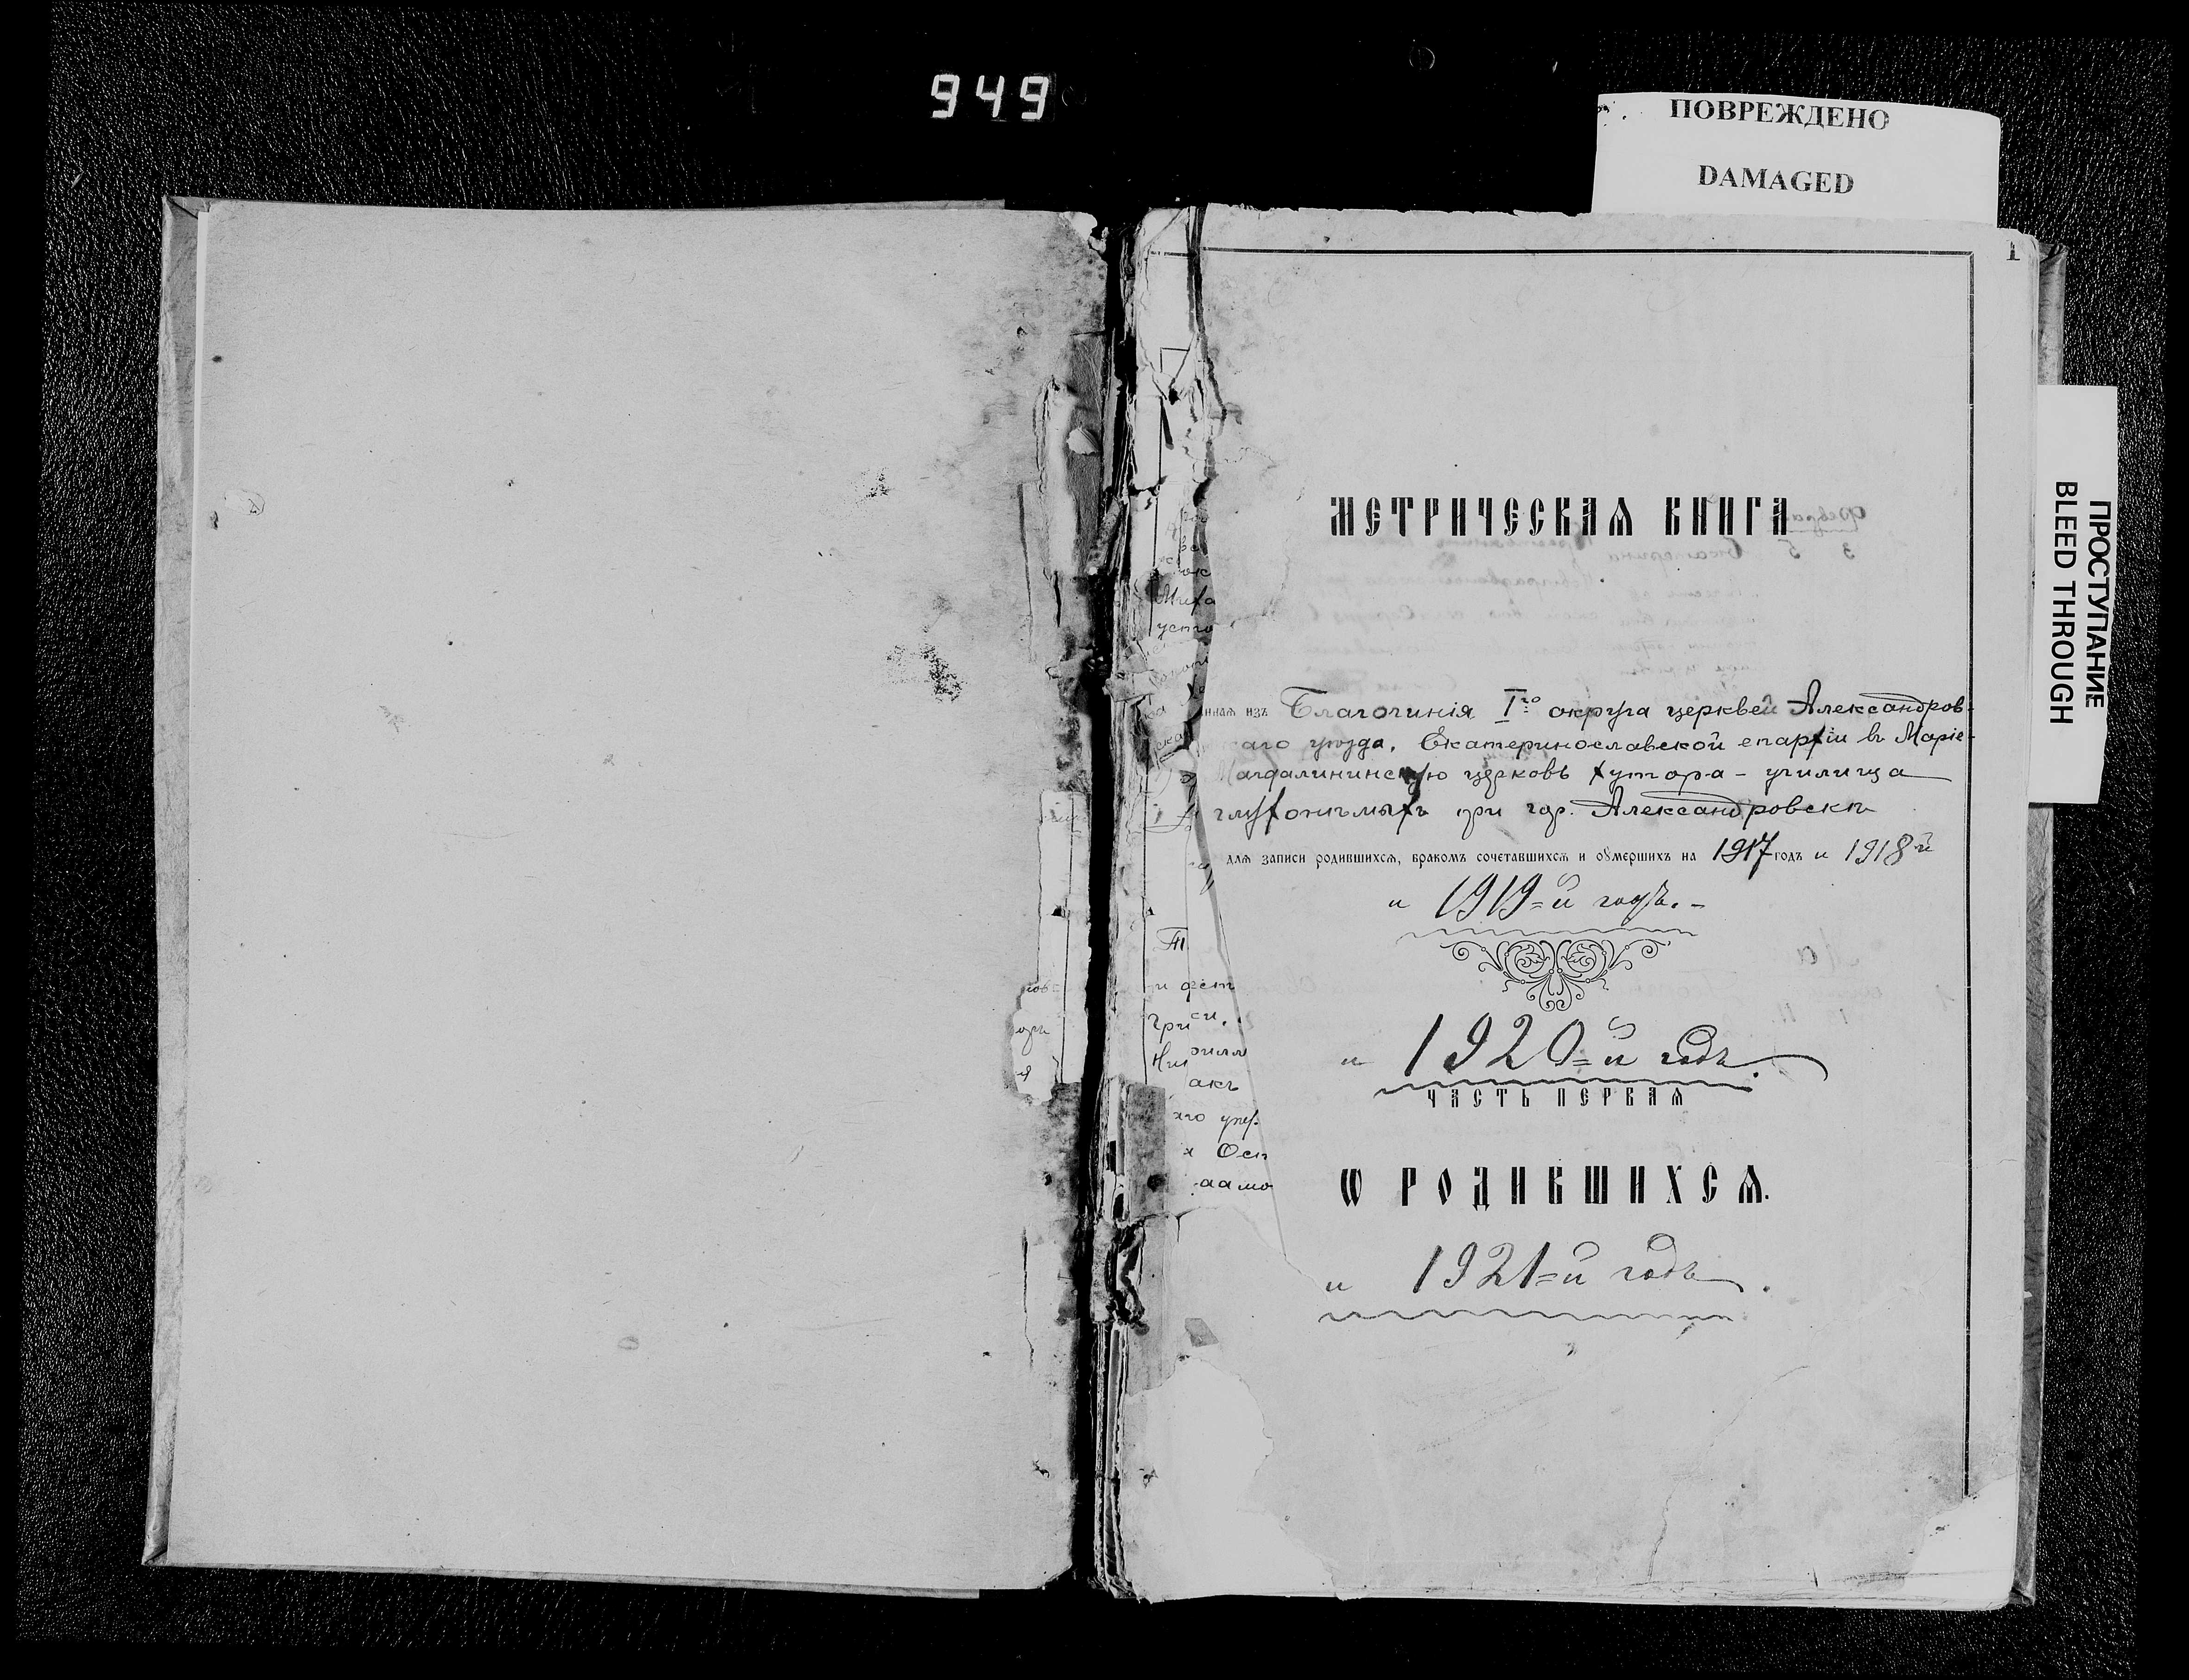 949
ПОВРЕЖДЕНО
DAMAGED
1
ПРОСТУПАНИЕ
BLEED THROUGH
МЕТРИЧЕСКАѦ КНИГА
ннаѧ изъ Благочинія Iго округа церквей Александров-
скаго уѣзда, Екатеринославской епархіи въ Маріе-
Магдалининскую церковь хутора-училища
глухонѣмыхъ при гор. Александровскѣ
длѧ записи родившихсѧ, бракомъ сочетавшихсѧ и оумершихъ на 1917 годъ и 1918й
и 1919=й годъ.-
и 1920=й годъ.
ЧАСТЬ ПЕРВАѦ
Ѡ РОДИВШИХСѦ.
и 1921=й годъ.